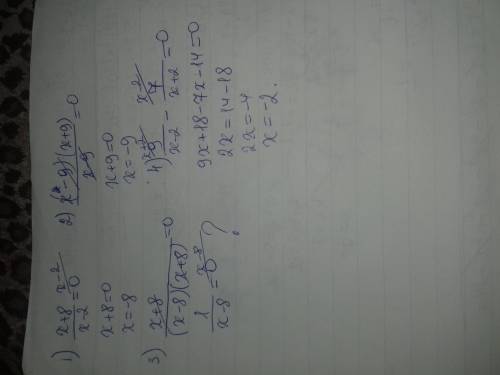 1) (x+8)/(x-2) = 0   x-2
x+8=0
x=-8
2) (x²-9)(x+9)/(x-9) = 0
x+9=0
x=-9
3) (x+8)/((x-8)(x+8)) = 0
1/(x-8) = 0   x-8   ?
4) 9/(x-2) - 7/(x+2) = 0   x+2   x-2
9x+18-7x-14=0
2x=14-18
2x=-4
x=-2.